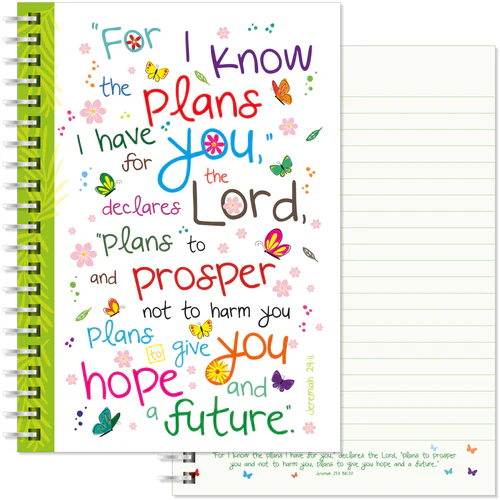 "For I know
the plans
I have
for you,"
the
declares Lord,
"plans to
and prosper
not to harm you
plans to give you
hope and
a future".
Jeremiah 29:11
"For I know the plans I have for you," declares the Lord, "plans to prosper
you and not to harm you, plans to give you hope and a future."
Jeremiah 29:11